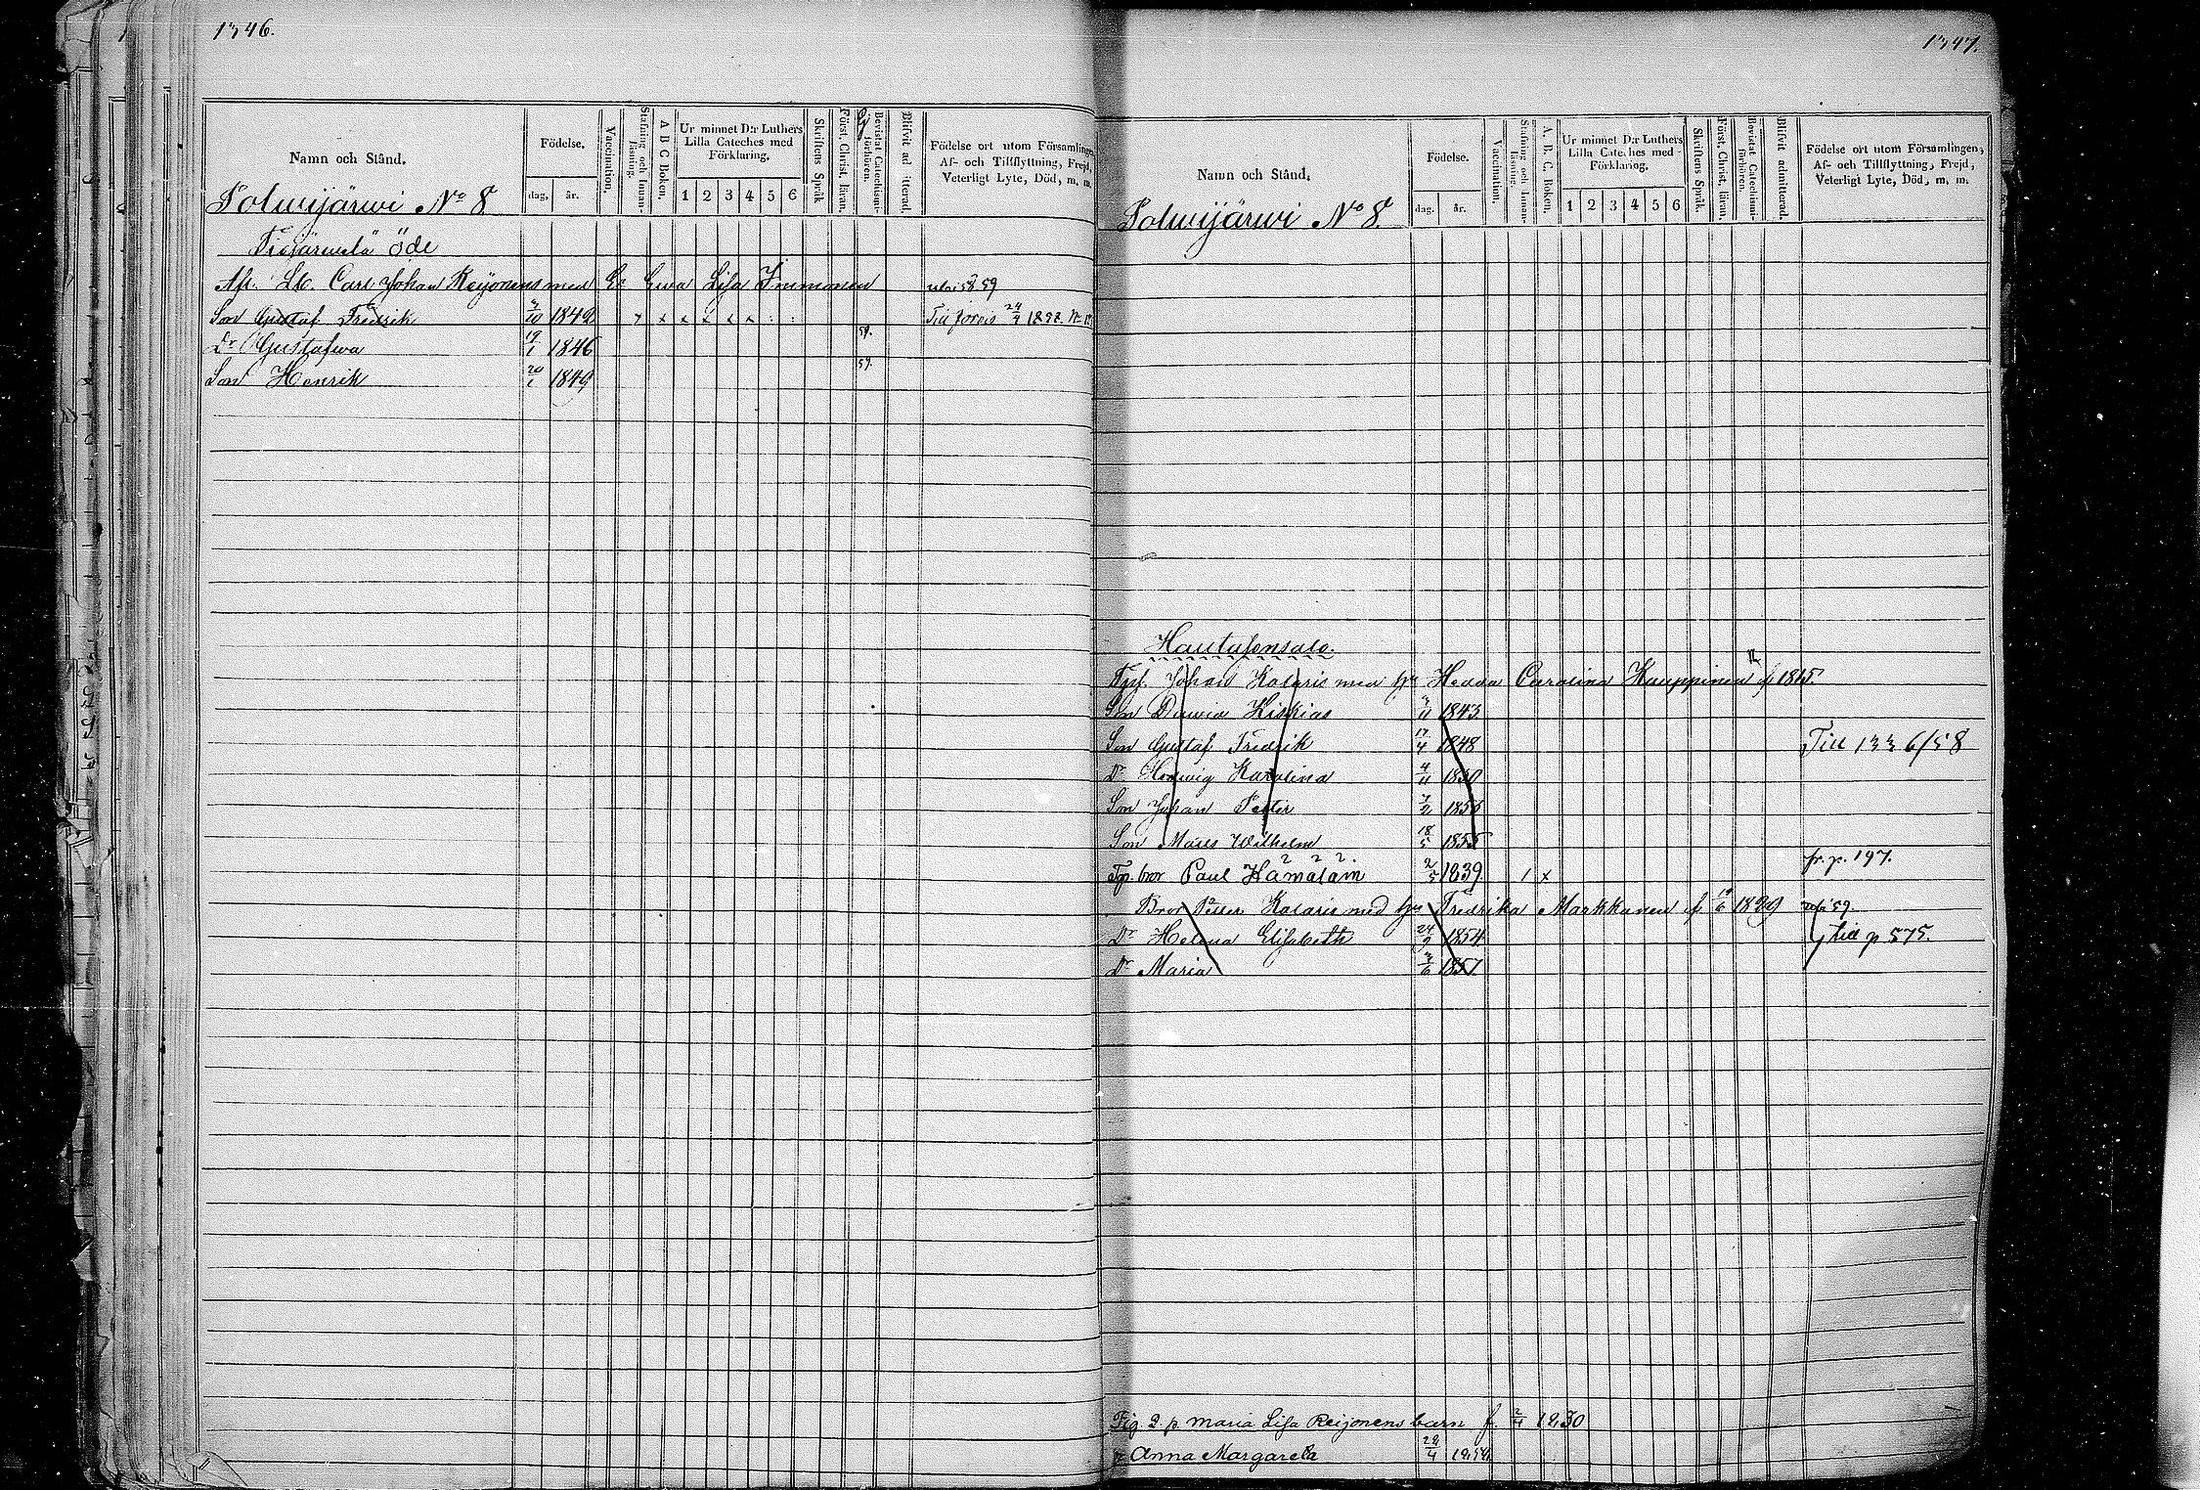 1346.
Namn och Stånd.
Födelse.
dag.
år.
Vaccination.
Stafning och Innan-läsning.
A B C Boken.
Ur minnet D:r Luthers Lilla Cateches med Förklaring.
1 2 3 4 5 6
Skriftens Språk
Först. Christ. läran.
Bevistat Catechismi-förhören.
Blifvit ad itterad.
Födelse ort utom Församlingen,
Af- och Tillflyttning, Frejd,
Veterligt Lyte, Död, m. m.
Polwijärwi No 8
öde
Afl. Carl Johan Reijonens med Ea Ewa Lisa Immonen 59
Son Gustaf Fredrik 3/10 1842 x x x x x x Till 24/4 1858.
Dr Gustafwa 19/1 1846 59.
Son Henrik 20/1 1849 59.
1347.
Namn och Stånd.
Födelse.
dag.
år.
Vaccination.
Stafning och Innan-läsning.
A. B. C. Boken.
Ur minnet D:r Luthers Lilla Cateches med Förklaring.
1 2 3 4 5 6
Skriftens Språk.
Först. Christ. läran.
Bevistat Catechismi-förhören.
Blifvit admitterad.
Födelse ort utom Församlingen,
Af- och Tillflyttning, Frejd,
Veterligt Lyte, Död, m. m.
Polwijärwi No 8.
Johan Kolaris med hu Hedda Carolina Kauppinen f 1815.
Son Dawid Hiskias 3/11 1843
Son Gustaf Fredrik 17/4 1848 Till 1336/58
Dr Hedwig Karolina 4/11 1850
Son Johan Petter 7/2 1855
Son Mats Wilhelm 18/5 1855
bror Paul Hämäläin 2/5 1839 / x fr. p. 197.
Bror Petter Kolaris med hu Fredrika Markkanen f. 1829 59.
Dr Helena Elisabeth 24/9 1854 till p 575.
Dr Maria 3/6 1857
Pig 2 p Maria Lisa Reijonens barn f. 2/4 1830
Anna Margareta 22/4